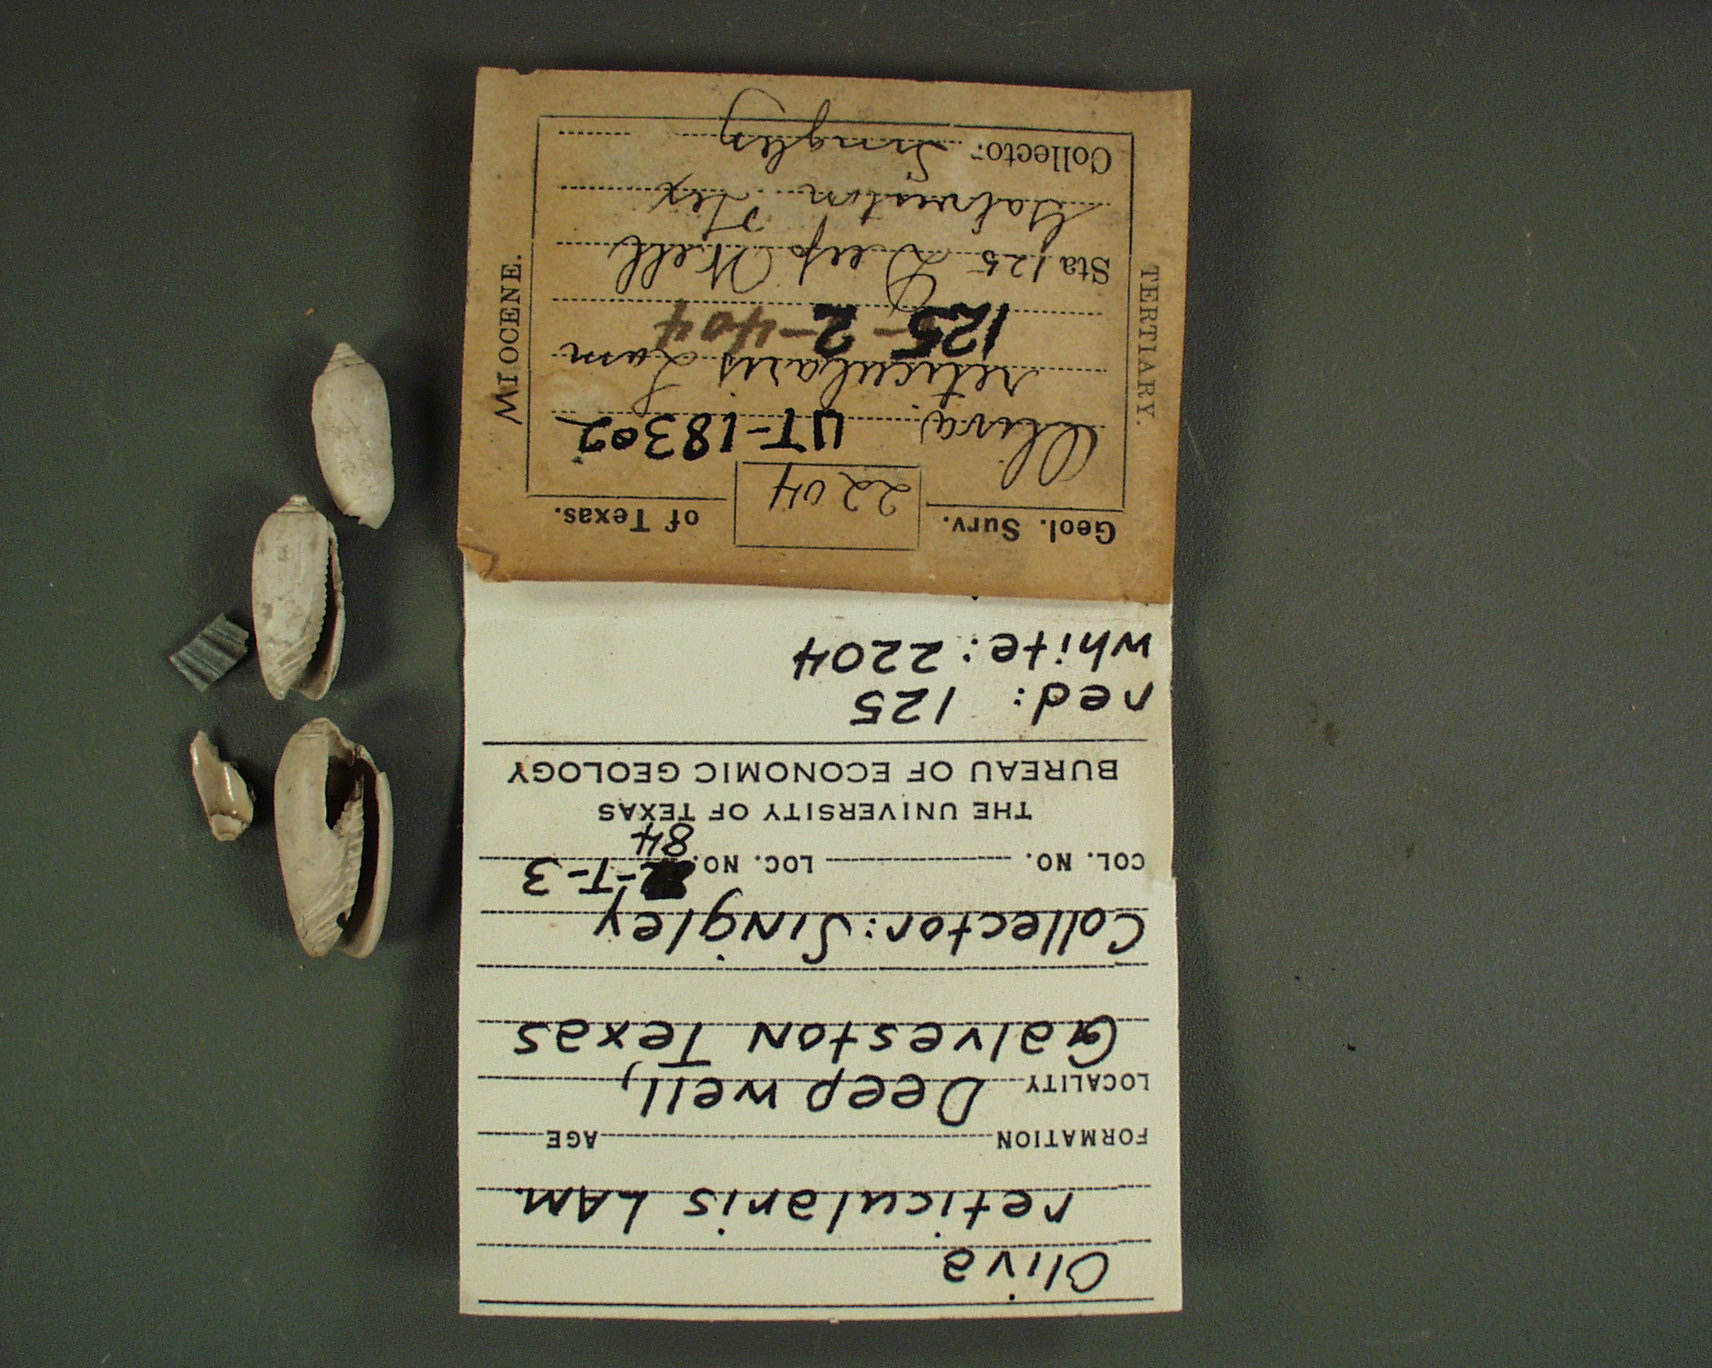 Oliva
reticularis LAM.
FORMATION AGE
LOCALITY Deep well,
Galveston Texas
Collector: Singley
COL. NO. LOC. NO. -T-3
84
THE UNIVERSITY OF TEXAS
BUREAU OF ECONOMIC GEOLOGY
red: 125
white: 2204
Geol. Surv. 2204 of Texas.
Oliva UT-18302
reticularis Lam
125-2-404
Sta 125 Deep Well
Galveston Tex
Collector Singley
TERTIARY.
MIOCENE.